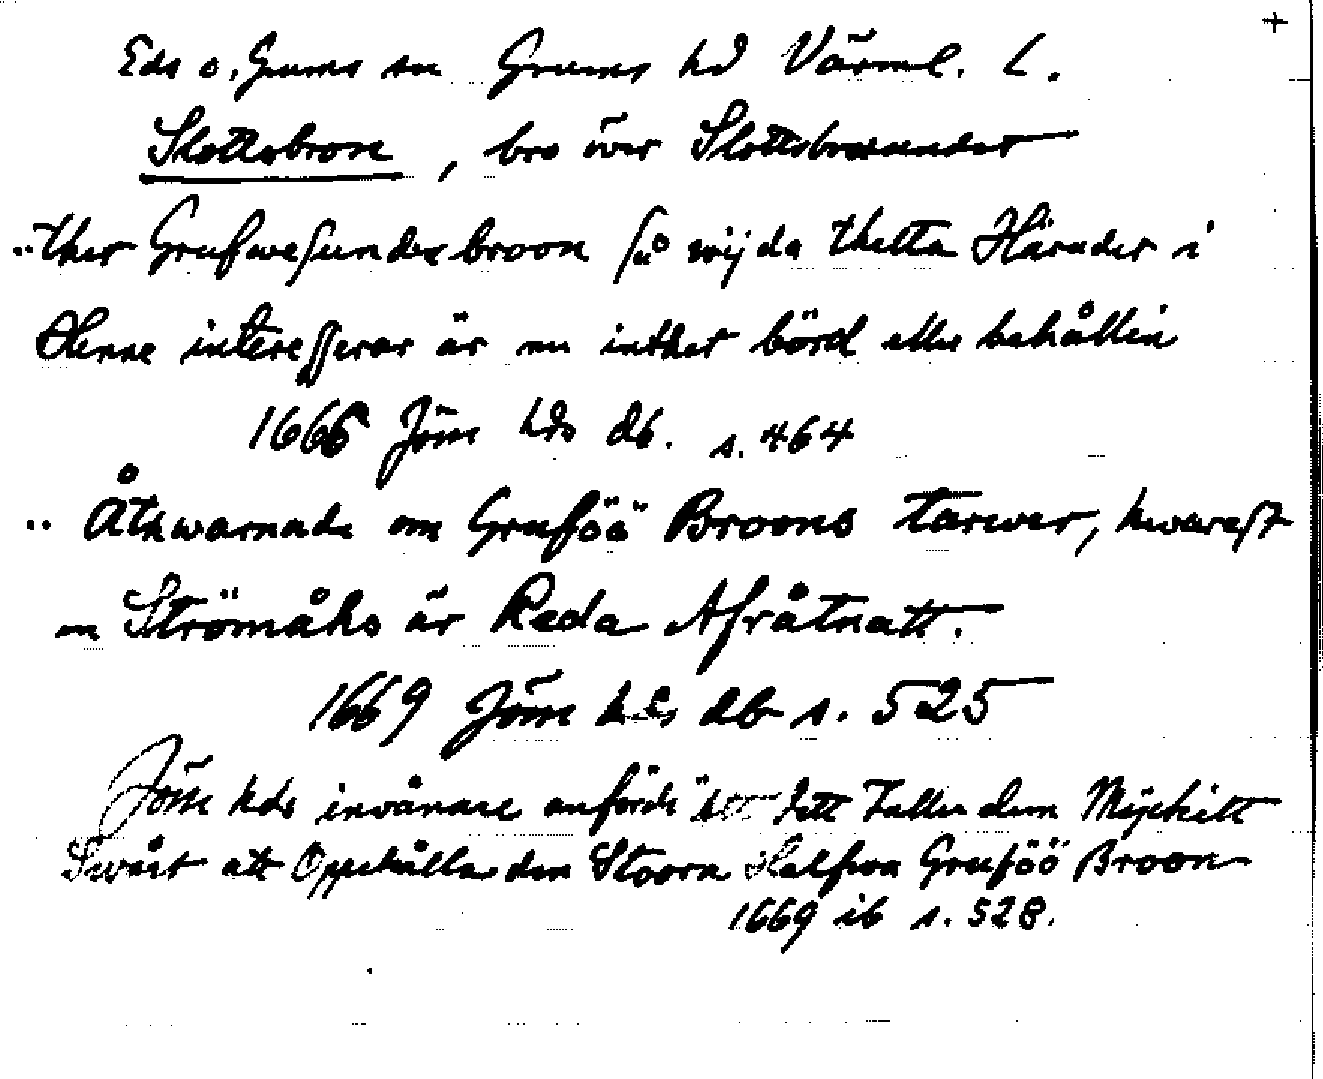 Eds o. Grums sn Grums hd Värml. L.
Slottsbron, bro över Slottsbrosundet
..ther Grufwesundz broon så wijda thetta Häradet i
Thenne interesserar är nu inthet börd eller behållin
1666 Jöss hds db. s. 464
.. Åtkwarnade om Gruföö Broons tarwer, hwarest
en Strömåhs är Reda Afråtnatt.
1669 Jöss hds db s. 525
Jöss hds invånare anförde att dett Faller dem Myckitt
Swårt att Oppehålla den Stoora Halfwa Gruföö Broon
1669 ib s. 528.